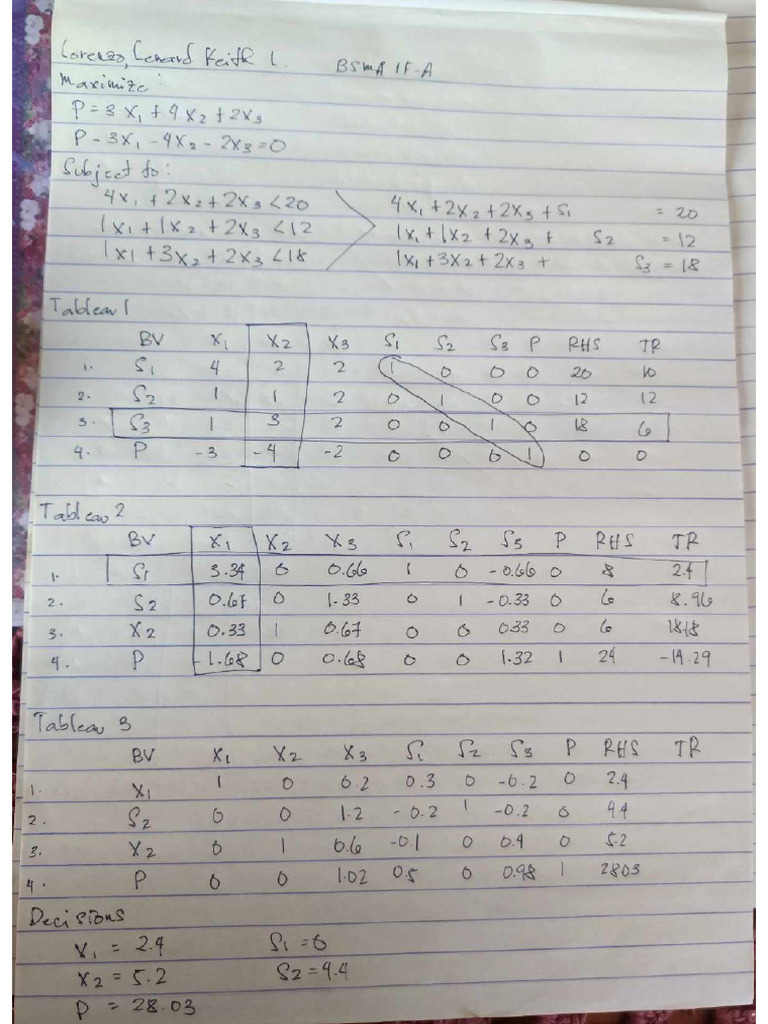 Lorenzo, Lenard Keith L. BSMA 1F-A
Maximize:
P=3X₁+4X₂+2X₃
P-3X₁-4X₂-2X₃=0
Subject to:
4X₁+2X₂+2X₃<20 4X₁+2X₂+2X₃+S₁ =20
1X₁+1X₂+2X₃<12 1X₁+1X₂+2X₃+ S₂ =12
1X₁+3X₂+2X₃<18 1X₁+3X₂+2X₃+ S₃=18
Tableau 1
BV X₁ X₂ X₃ S₁ S₂ S₃ P RHS TR
1. S₁ 4 2 2 1 0 0 0 20 10
2. S₂ 1 1 2 0 1 0 0 12 12
3. S₃ 1 3 2 0 0 1 0 18 6
4. P -3 -4 -2 0 0 0 1 0 0
Tableau 2
BV X₁ X₂ X₃ S₁ S₂ S₃ P RHS TR
1. S₁ 3.34 0 0.66 1 0 -0.66 0 8 2.4
2. S₂ 0.67 0 1.33 0 1 -0.33 0 6 8.96
3. X₂ 0.33 1 0.67 0 0 0.33 0 6 18.18
4. P -1.68 0 0.68 0 0 1.32 1 24 -14.29
Tableau 3
BV X₁ X₂ X₃ S₁ S₂ S₃ P RHS TR
1. X₁ 1 0 0.2 0.3 0 -0.2 0 2.4
2. S₂ 0 0 1.2 -0.2 1 -0.2 0 4.4
3. X₂ 0 1 0.6 -0.1 0 0.4 0 5.2
4. P 0 0 1.02 0.5 0 0.98 1 28.03
Decisions
X₁ = 2.4 S₁=0
X₂ = 5.2 S₂=4.4
P = 28.03